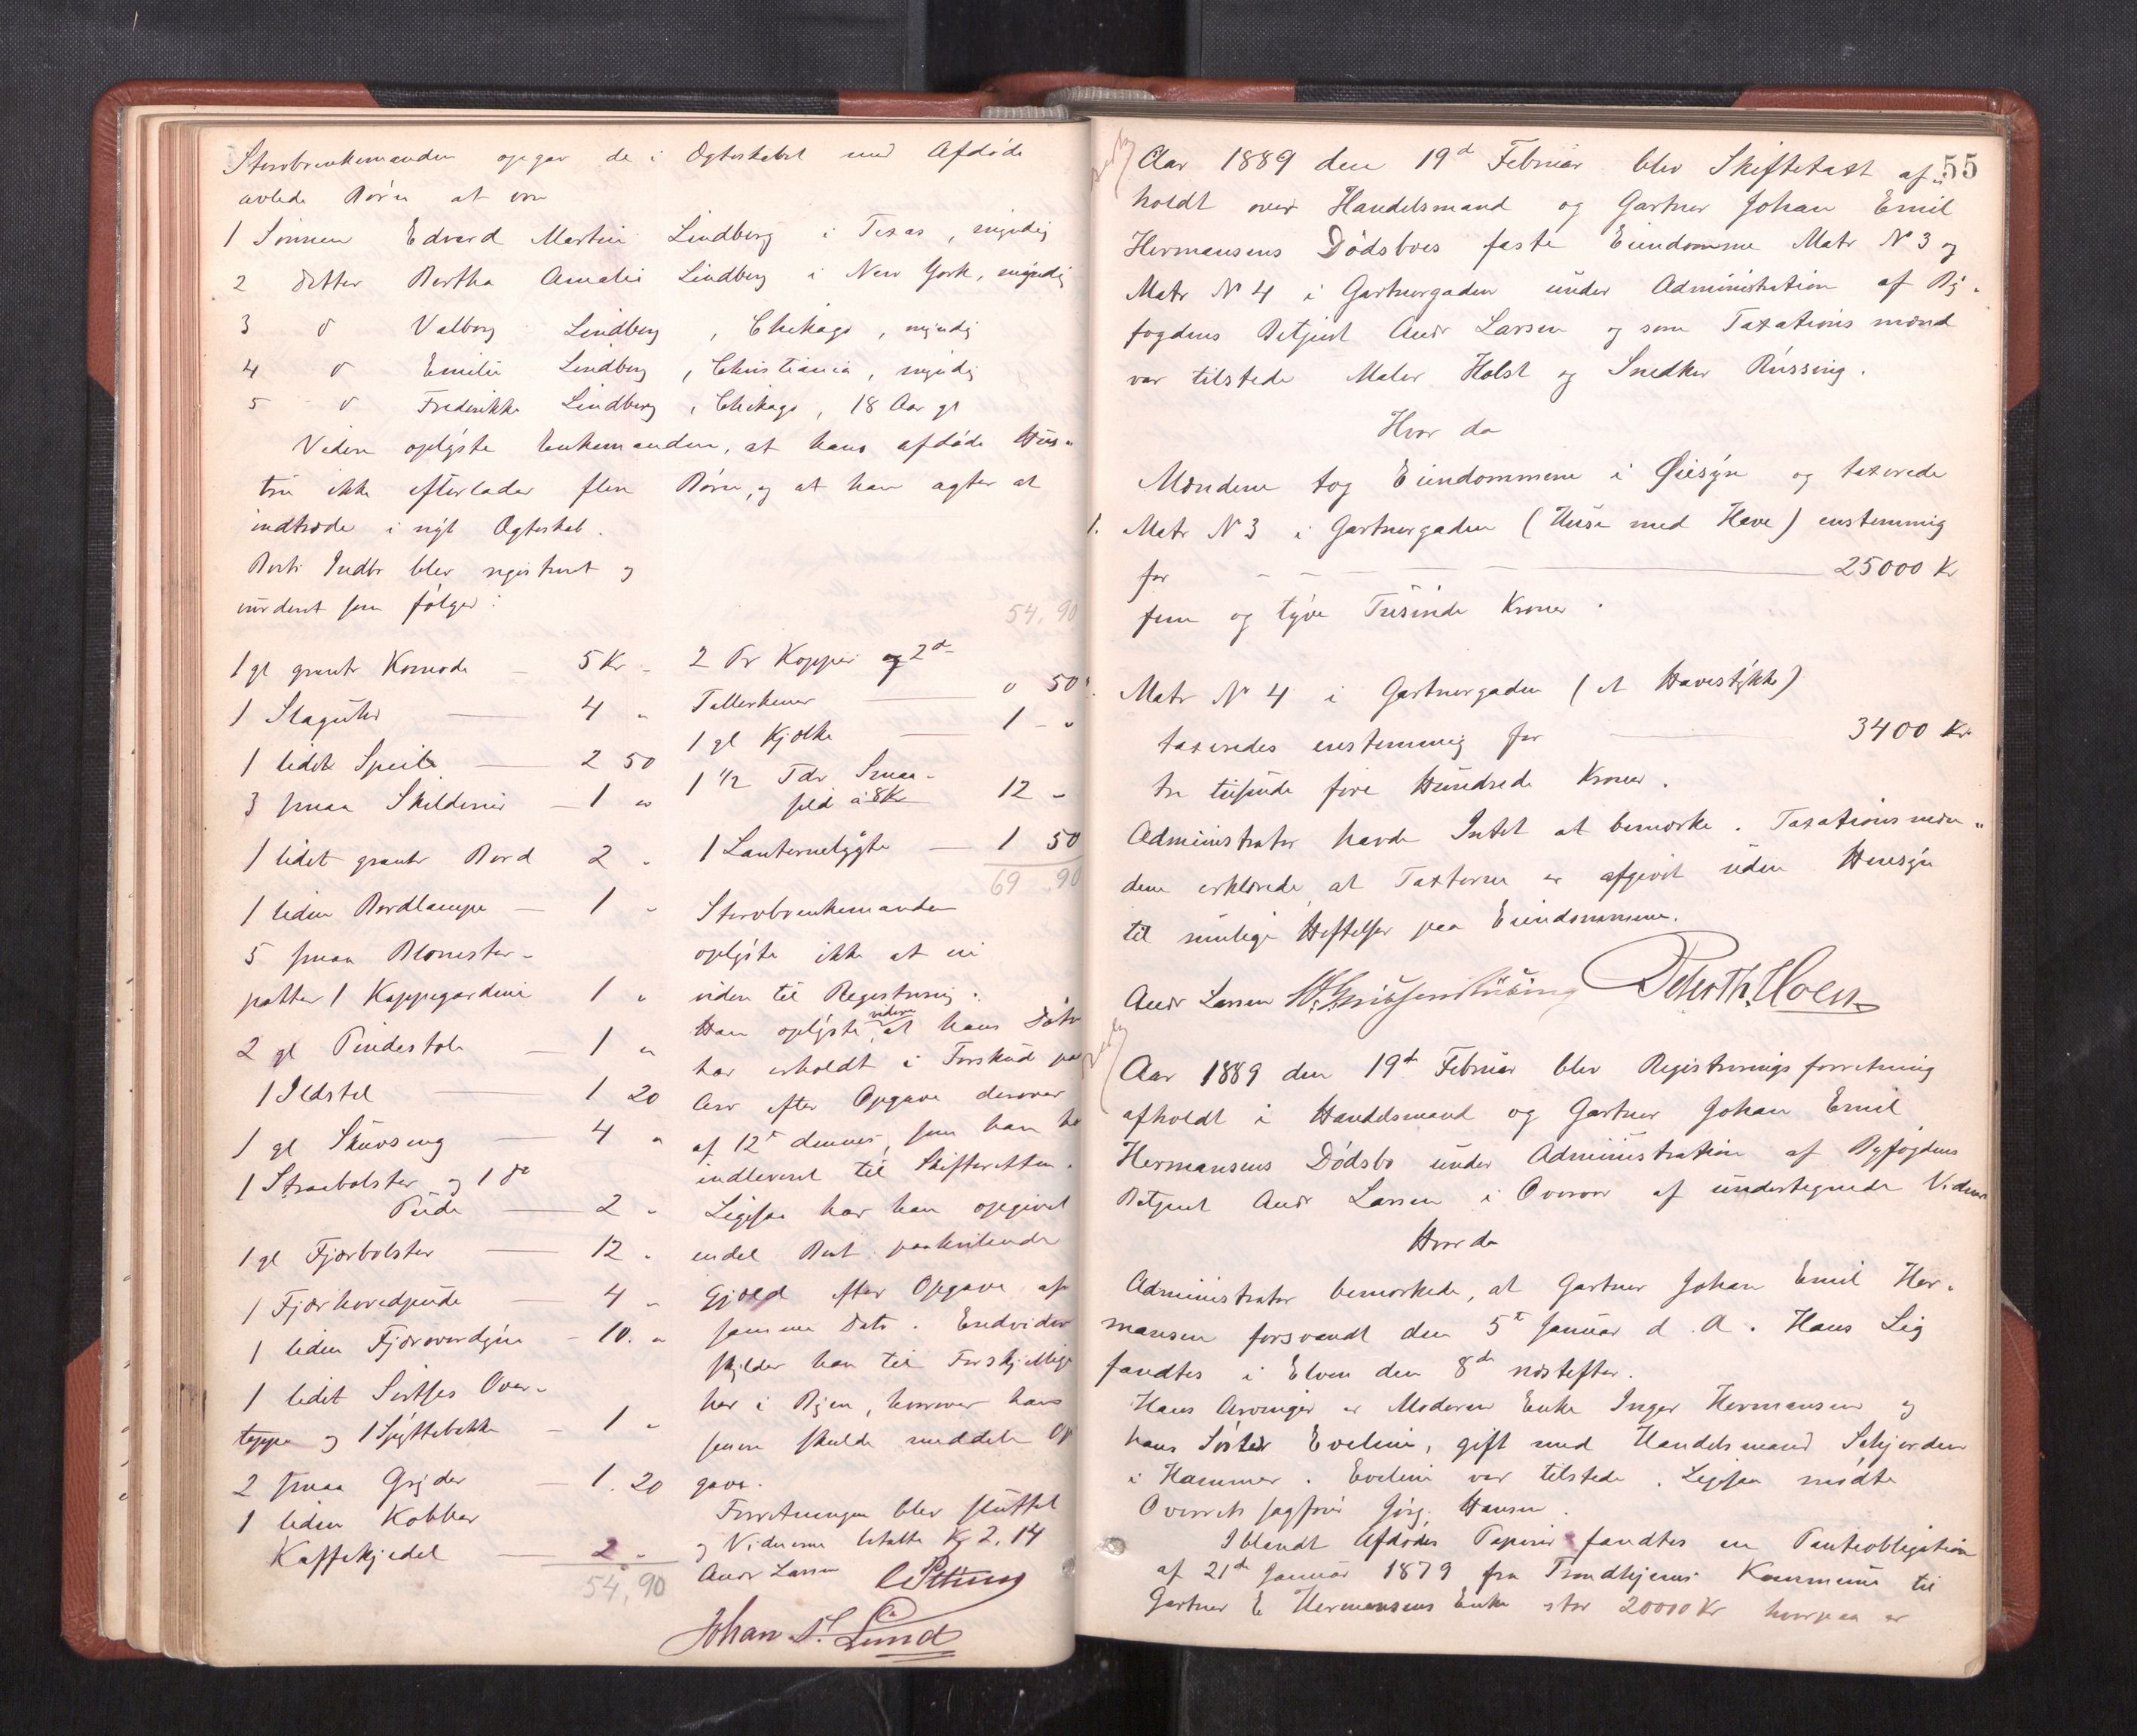 Stervboenkemanden opgav de i Ægteskabet med Afdøde
avlede Børn at være
1 Sønnen Edvard Martin Lindberg i Texas, myndig
2 Datter Bertha Amalie Lindberg i New York, myndig
3 d Valborg Lindberg, Chikago, myndig
4 d Emilie Lindberg, Christiania, myndig
5 d Frederikke Lindberg, Chikago, 18 Aar gl
Videre oplyste Enkemanden, at hans afdøde Hus-
tru ikke efterlader flere Børn, og at han agter at
indtræde i nyt Ægteskab.
Boets Indbo blev registreret og
vurderet som følger:
1 gl grønt Komode - 5 Kr -
1 Slaguhr - 4 "
1 lidet Speil - 2 50
3 smaa Skilderier - 1 "
1 lidet grønt Bord 2 "
1 liden Bordlampe - 1 "
5 smaa Blomster-
potter 1 Kappegardine 1 "
2 gl Pindestole - 1 "
1 Ildstel - 1 20
1 gl Skuvseng - 4 "
1 Straabolster og 1 do
Pude - 2 "
1 gl Fjærbolster - 12 "
1 Fjærhovedpude - 4 "
1 liden Fjæroverdyne - 10. "
1 lidet Over-
teppe og 1 Spyttebakke - 1 "
2 smaa Gryder - 1. 20
1 liden Kobber
Kaffekjedel - 2 "
54,90
54,90
2 Par Kopper og 2 d
Tallerkener - " 50
1 gl Kjælke - 1 - "
1 1/2 Tdr Smaa-
sild à 8 Kr 12 -
1 Lanternelygte - 1 50
69,90
Stervboenkemanden
oplyste ikke at eie
videre til Registrering.
Han oplyste videre at hans Døtre
har erholdt i Forskud paa
Arv efter Opgave derover
af 12te dennes, som han har
indleveret til Skifteretten.
Ligesaa har han opgivet
endel Boet paahvilende
Gjæld efter Opgave af
samme Dato. Endvidere
skylder han til Forskjellige
her i Byen, hvorover hans
skulde meddele Op
gave.
Forretningen blev sluttet
og Vidnerne betalte Kr 2,14
Andr Larsen
Johan Lund
55
Aar 1889 den 19d Februar blev Skiftetaxt af-
holdt over Handelsmand og Gartner Johan Emil
Hermansens Dødsboes faste Eiendomme Matr No 3 og
Matr No 4 i Gartnergaden under Administration af By-
fogdens Betjent Andr Larsen og som Taxationsmænd
var tilstede Maler Holst og Snedker Rüssing.
Hvor da
Mændene tog Eiendommene i Øiesyn og taxerede
1. Matr No 3 i Gartnergaden (Huse med Have) enstemmig
for - 25000 Kr
fem og tyve Tusinde Kroner.
Matr No 4 i Gartnergaden (et Havestykke)
taxeredes enstemmig for - 3400 Kr
tre tusinde fire Hundrede Kroner.
Administrator havde Intet at bemærke. Taxationsmæn-
dene erklærede at Taxterne er afgivet uden Hensyn
til mulige Heftelser paa Eiendommene.
Andr Larsen
Aar 1889 den 19de Februar blev Registreringsforretning
afholdt i Handelsmand og Gartner Johan Emil
Hermansens Dødsbo under Administration af Byfogdens
Betjent Andr Larsen i Overvær af undertegnede Vidner
Hvor da
Administrator bemærkede, at Gartner Johan Emil Her-
mansen forsvandt den 5te Januar d. A. Hans Lig
fandtes i Elven den 8de næstefter.
Hans Arvinger er Moderen Enke Inger Hermansen og
hans Søster Eveline, gift med Handelsmand Schjerden
i Hammer. Eveline var tilstede. Ligesaa mødte
Overretssagfører Jørg. Hansen.
Iblandt Afdødes Papirer fandtes en Panteobligation
af 21de Januar 1879 fra Trondhjems Kommune til
Gartner E Hermansens Enke stor 20000 Kr hvorpaa er